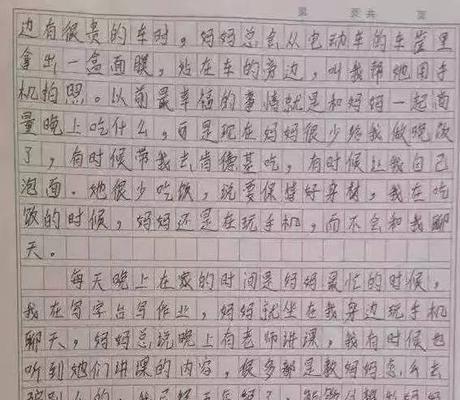 第 页共 页
边有很贵的车时，妈妈总会从电动车的车筐里
拿出一盒面膜，站在车的旁边，叫我帮她用手
机拍照。以前最幸福的事情就是和妈妈一起商
量晚上吃什么，可是现在妈妈很少给我做晚饭
了，有时候带我去肯德基吃，有时候让我自己
泡面。她很少吃饭，说要保持好身材，我在吃
饭的时候，妈妈还是在玩手机，而不会和我聊
天。
每天晚上在家的时间是妈妈最忙的时候，
我在写字台写作业，妈妈就坐在我身边玩手机
聊天，妈妈总说晚上有老师讲课，我有时候也
听到她们讲课的内容，很多都是教妈妈怎么去